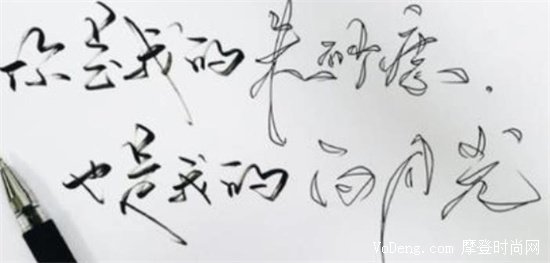 你是我的朱砂痣.
也是我的白月光
VoDeng.com 摩登时尚网